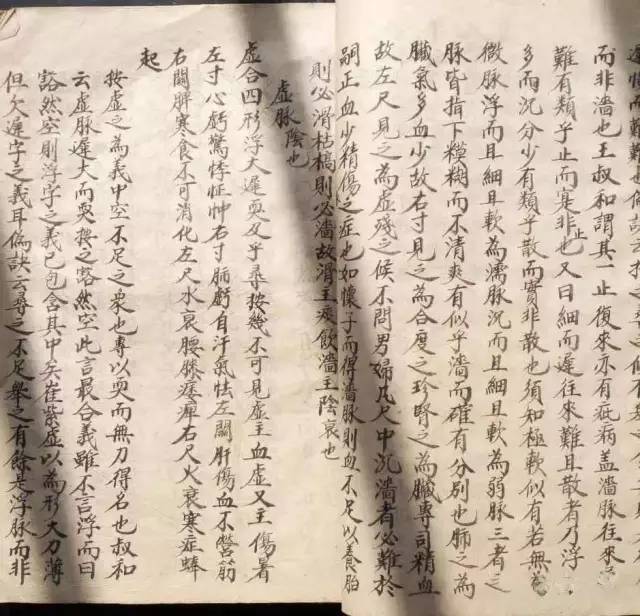 而非濇也王叔和謂其一止復來亦有疵病盖濇脉往來
難有類乎止而寔非止也又曰細而遲往來難且散者乃浮
多而沉分少有類乎散而實非散也須知極軟似有若無為
微脉浮而且細且軟為濡脉沉而且細且軟為弱脉三者之
脉皆指下模糊而不清爽有似乎濇而確有分别也肺之為
臟氣多血少故右寸見之為合度之珍腎之為臟專司精血
故左尺見之為虛殘之候不問男婦凡尺中沉濇者必難於
嗣正血少精傷之症也如懷子而得濇脉則血不足以養胎
則必滑枯槁則必濇故滑主痰飲濇主陰衰也
虛脉陰也
虛合四形浮大遲耎及乎尋按幾不可見虛主血虛又主傷暑
左寸心虧驚悸怔忡右寸肺虧自汗氣怯左關肝傷血不營筋
右關脾寒食不可消化左尺水衰腰膝痿痺右尺火衰寒症蜂
起
按虛之為義中空不足之象也專以耎而無力得名也叔和
云虛脉遲大而耎按之豁然空此言最合義雖不言浮而曰
豁然空則浮字之義已包含其中矣崔紫虛以為形大力薄
但欠遲字之義耳偽訣云尋之不足舉之有餘是浮脉而非